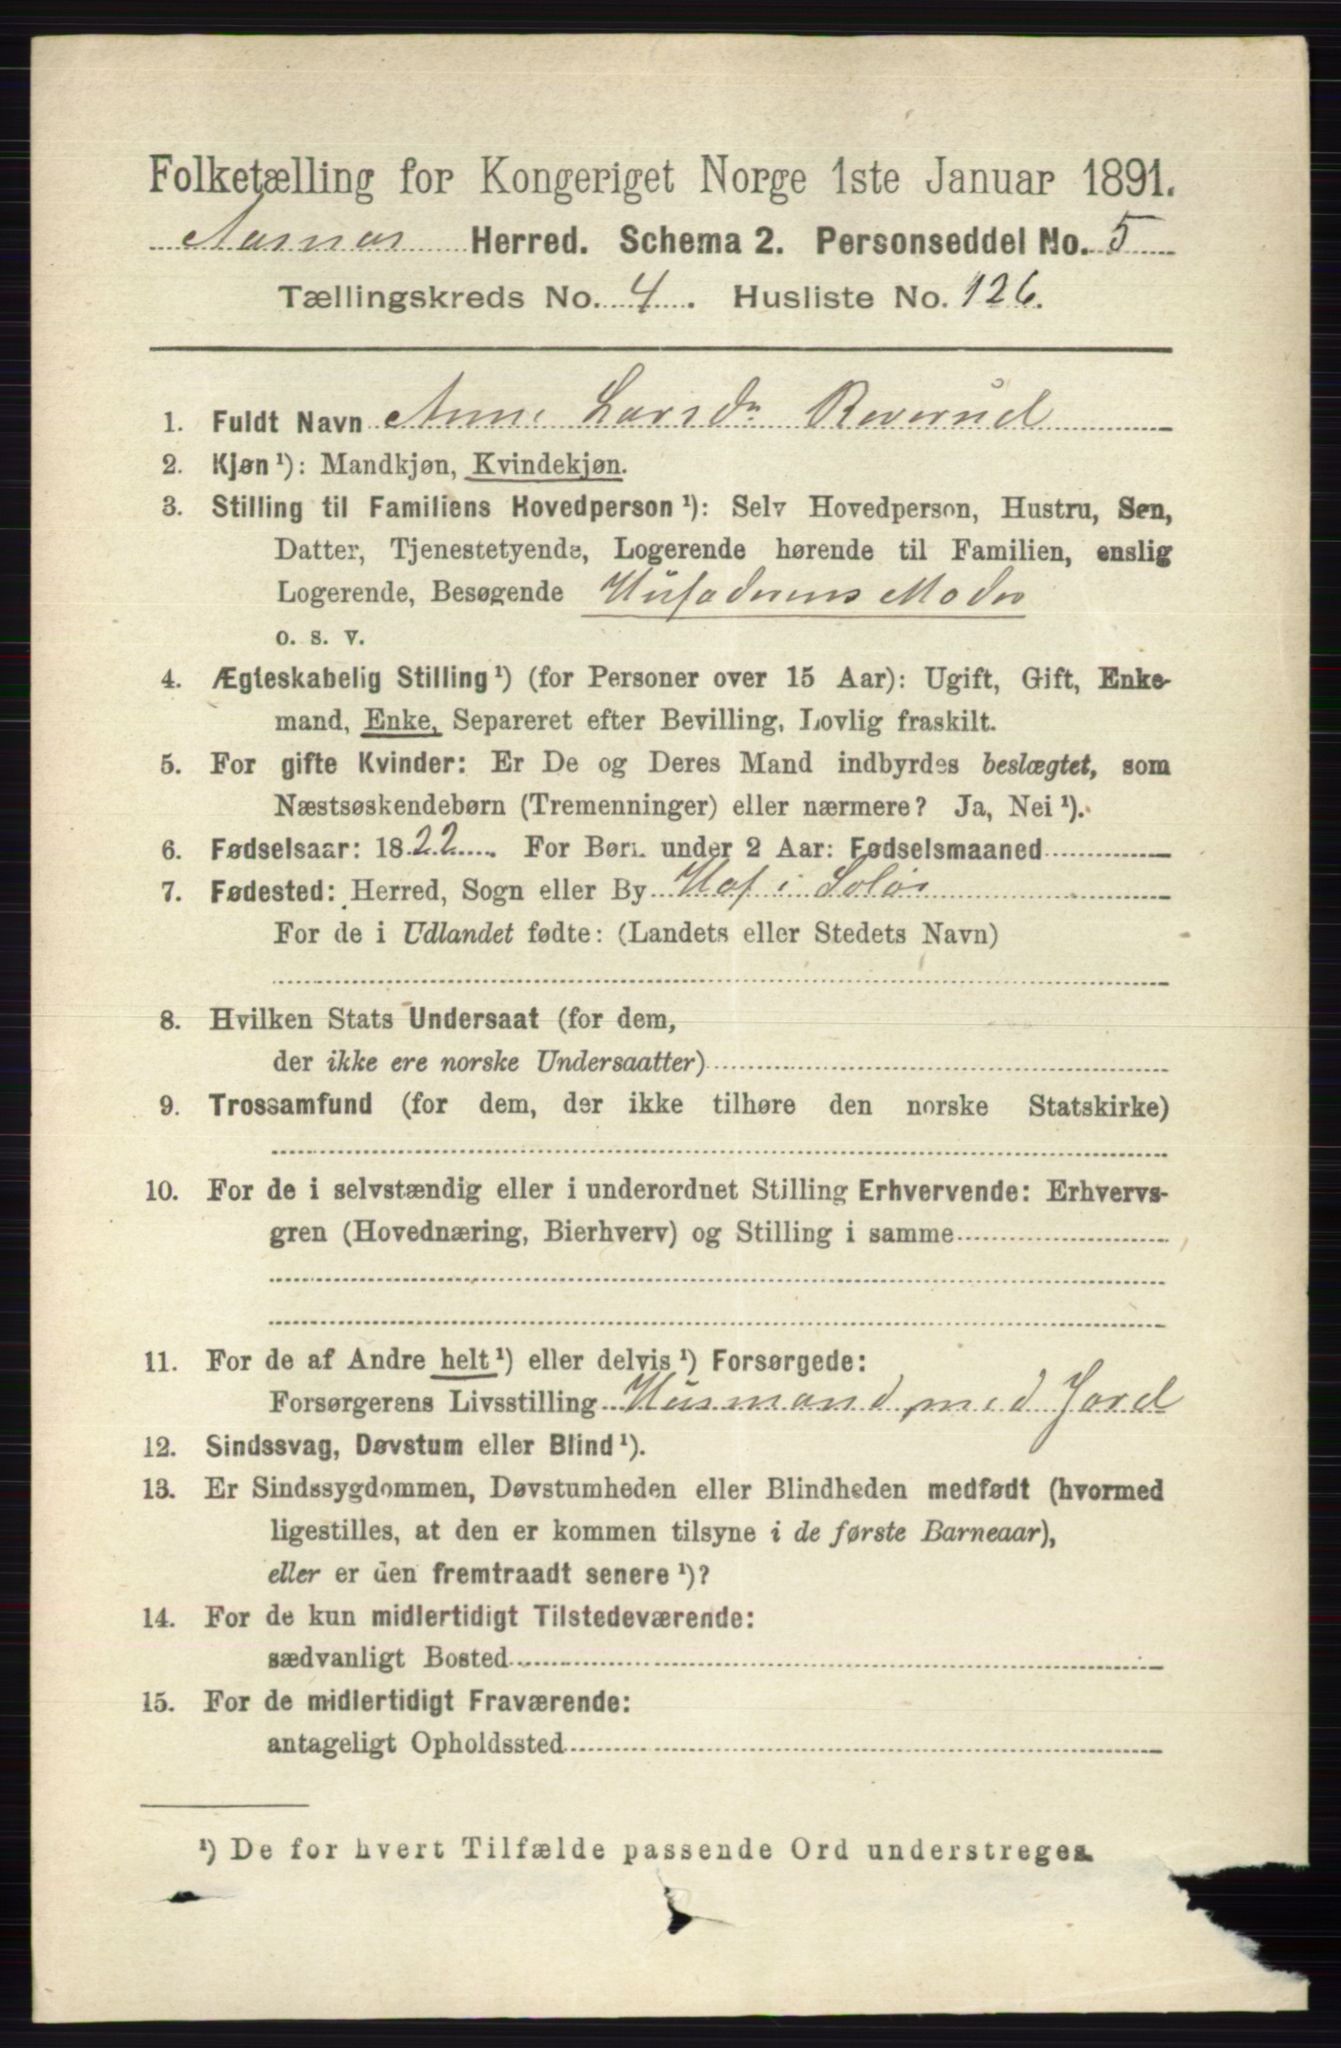 Folketælling for Kongeriget Norge 1ste Januar 1891.
Aasnæs Herred. Schema 2. Personseddel No. 5
Tællingskreds No. 4. Husliste No. 126.
1. Fuldt Navn Anne Larsdr Reverud
2. Kjøn ¹): Mandkjøn, Kvindekjøn.
3. Stilling til Familiens Hovedperson ¹): Selv Hovedperson, Hustru, Søn,
Datter, Tjenestetyende, Logerende hørende til Familien, enslig
Logerende, Besøgende Husfaderens Moder
o. s. v.
4. Ægteskabelig Stilling ¹) (for Personer over 15 Aar): Ugift, Gift, Enke-
mand, Enke, Separeret efter Bevilling, Lovlig fraskilt.
5. For gifte Kvinder: Er De og Deres Mand indbyrdes beslægtet, som
Næstsøskendebørn (Tremenninger) eller nærmere? Ja, Nei ¹).
6. Fødselsaar: 1822. For Børn under 2 Aar: Fødselsmaaned
7. Fødested: Herred, Sogn eller By Hof i Solør
For de i Udlandet fødte: (Landets eller Stedets Navn)
8. Hvilken Stats Undersaat (for dem,
der ikke ere norske Undersaatter)
9. Trossamfund (for dem, der ikke tilhøre den norske Statskirke)
10. For de i selvstændig eller i underordnet Stilling Erhvervende: Erhvervs-
gren (Hovednæring, Bierhverv) og Stilling i samme
11. For de af Andre helt ¹) eller delvis ¹) Forsørgede:
Forsørgerens Livsstilling Husmand med Jord
12. Sindssvag, Døvstum eller Blind ¹).
13. Er Sindssygdommen, Døvstumheden eller Blindheden medfødt (hvormed
ligestilles, at den er kommen tilsyne i de første Barneaar),
eller er den fremtraadt senere ¹)?
14. For de kun midlertidigt Tilstedeværende:
sædvanligt Bosted
15. For de midlertidigt Fraværende:
antageligt Opholdssted
¹) De for hvert Tilfælde passende Ord understreges.